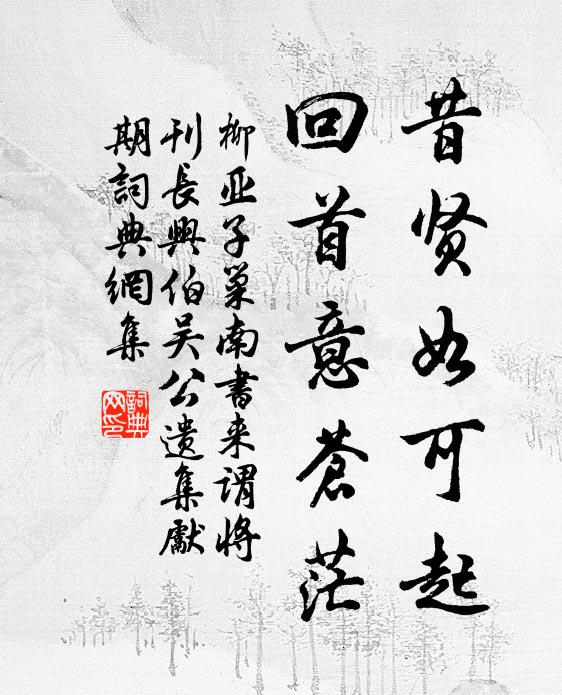 昔贤如可起
回首意苍茫
柳亚子巢南書来謂将
刊長興伯吴公遗集獻
期詞典網集
詞典
网印